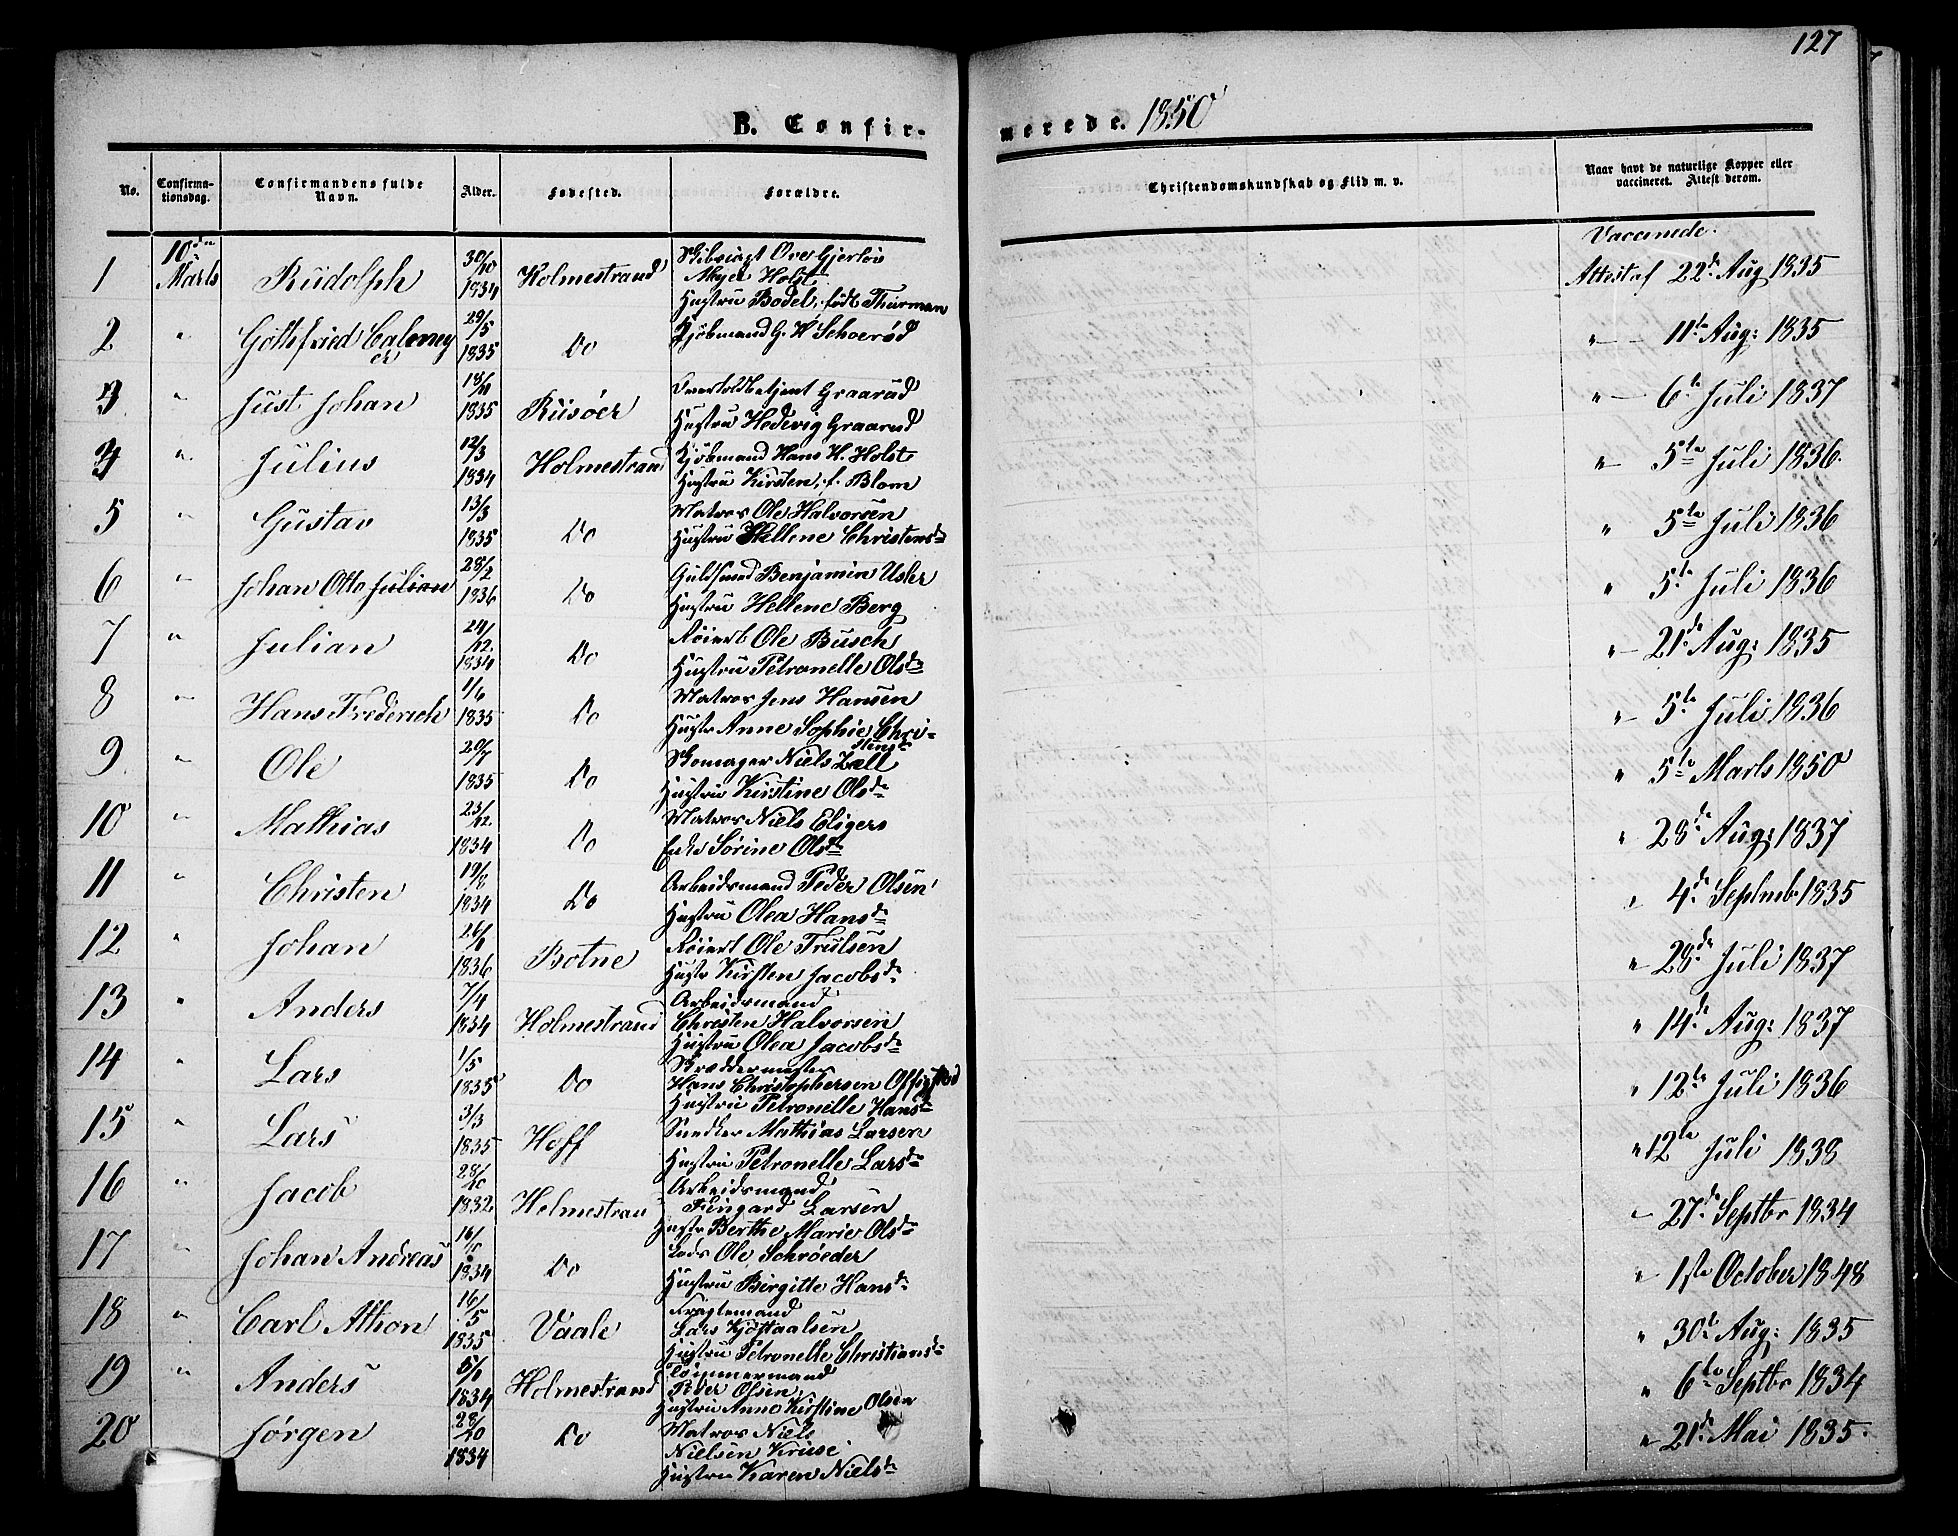 127
B. Confir- merede. 1850
No. Confirmationsdag. Confirmandens fulde Navn. Alder. Fødested. Forældre. Christendomskundskab og Flid m. v. Naar havt de naturlige Kopper eller vaccineret. Attest derom.
Vaccinede.
1 10de Marts Rudolph 30/10 1834 Holmestrand Ove Gjerløv Meyer Holst Hustru Bodel, født Thurman Attest af 22de Aug 1835
2 " Gottfried 29/5 1835 Do Kjøbmand G. H. Schoerød " 11te Aug: 1835
3 " Just Johan 18/11 1835 Riisøer Overtoldbetjent Graarud Hustru Hedevig Graarud " 6te Juli 1837
4 " Julius 12/3 1834 Holmestrand Kjøbmand Hans H. Holst Hustru Kirsten, f. Blom " 5te Juli 1836.
5 " Gustav 13/3 1835 Do Matros Ole Halvorsen Hustru Hellene Christensd " 5te Juli 1836
6 " Johan Otto Julian 28/2 1836 Do Guldsmed Benjamin Usler Hustru Hellene Berg " 5te Juli 1836
7 " Julian 24/12 1834 Do Røiert Ole Busch Hustru Petronelle Olsd " 21de Aug: 1835
8 " Hans Frederich 1/6 1835 Do Matros Jens Hansen Hustr Anne Sophie Christensd " 5te Juli 1836
9 " Ole 20/7 1835 Do Skomager Niels Zall Hustru Kirstine Olsd " 5te Marts 1850
10 " Mathias 23/12 1834 Do Matros Niels Eligers Enke Sørine Olsd " 28de Aug: 1837
11 " Christen 19/8 1834 Do Arbeidsmand Peder Olsen Hustru Olea Hansd " 4de Septmb 1835
12 " Johan 26/1 1836 Botne Røiert Ole Trulsen Hustr Kirsten Jacobsd " 28de Juli 1837
13 " Anders 7/4 1834 Holmestrand Arbeidsmand Christen Halvorsen Hustru Olea Jacobsd " 14de Aug: 1837
14 " Lars 1/5 1835 Do Skreddermester Hans Christophersen Hustru Petronelle Hansd " 12te Juli 1836
15 " Lars 3/3 1835 Hoff Snedker Mathias Larsen Hustru Petronelle Larsd " 12te Juli 1838
16 " Jacob 28/10 1832 Holmestrand Arbeidsmand Fingard Larsen Hustr Berthe Marie Olsd " 27de Septbr 1834
17 " Johan Andreas 16/ 1834 Do Lods Ole Schrøeder Hustru Birgitte Hansd " 1ste October 1848
18 " Carl Athon 16/5 1835 Vaale Fragtemand Lars Kjøstaalsen Hustru Petronelle Christiansd " 30te Aug: 1835
19 " Anders 1834 Holmestrand Tømmermand Peder Olsen Hustru Anne Kirstine Olsen " 6te Septbr 1834
20 Jørgen 28/10 1834 Do Matros Niels Nielsen Kruse Hustru Karen Nielsd " 21de Mai 1835.